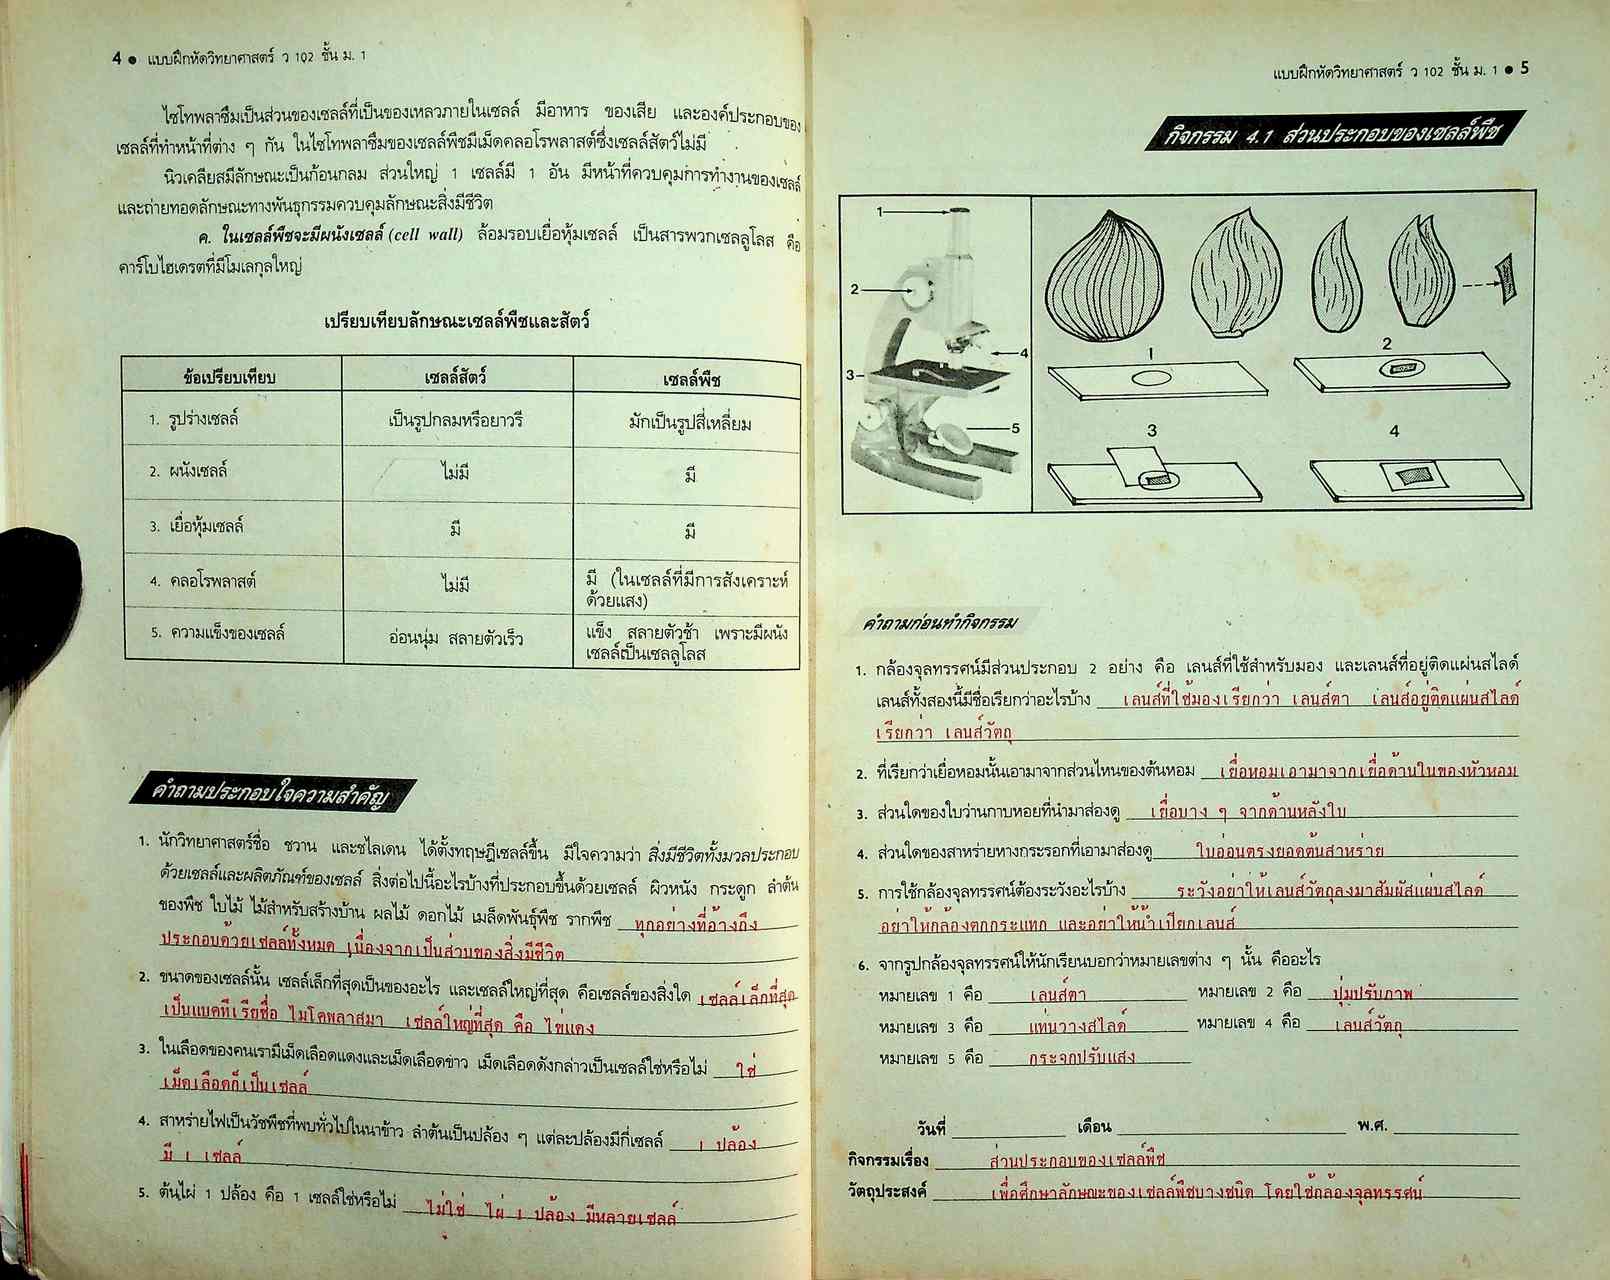 4 ● แบบฝึกหัดวิทยาศาสตร์ ว 102 ชั้น ม. 1
ไซโทพลาซึมเป็นส่วนของเซลล์ที่เป็นของเหลวภายในเซลล์ มีอาหาร ของเสีย และองค์ประกอบของ
เซลล์ที่ทำหน้าที่ต่าง ๆ กัน ในไซโทพลาซึมของเซลล์พืชมีเม็ดคลอโรพลาสต์ซึ่งเซลล์สัตว์ไม่มี
นิวเคลียสมีลักษณะเป็นก้อนกลม ส่วนใหญ่ 1 เซลล์มี 1 อัน มีหน้าที่ควบคุมการทำงานของเซลล์
และถ่ายทอดลักษณะทางพันธุกรรมควบคุมลักษณะสิ่งมีชีวิต
ค. ในเซลล์พืชจะมีผนังเซลล์ (cell wall) ล้อมรอบเยื่อหุ้มเซลล์ เป็นสารพวกเซลลูโลส คือ
คาร์โบไฮเดรตที่มีโมเลกุลใหญ่
เปรียบเทียบลักษณะเซลล์พืชและสัตว์
ข้อเปรียบเทียบ เซลล์สัตว์ เซลล์พืช
1. รูปร่างเซลล์ เป็นรูปกลมหรือยาวรี มักเป็นรูปสี่เหลี่ยม
2. ผนังเซลล์ ไม่มี มี
3. เยื่อหุ้มเซลล์ มี มี
4. คลอโรพลาสต์ ไม่มี มี (ในเซลล์ที่มีการสังเคราะห์
ด้วยแสง)
5. ความแข็งของเซลล์ อ่อนนุ่ม สลายตัวเร็ว แข็ง สลายตัวช้า เพราะมีผนัง
เซลล์เป็นเซลลูโลส
คำถามประกอบใจความสำคัญ
1. นักวิทยาศาสตร์ชื่อ ชวาน และชไลเดน ได้ตั้งทฤษฎีเซลล์ขึ้น มีใจความว่า สิ่งมีชีวิตทั้งมวลประกอบ
ด้วยเซลล์และผลิตภัณฑ์ของเซลล์ สิ่งต่อไปนี้อะไรบ้างที่ประกอบขึ้นด้วยเซลล์ ผิวหนัง กระดูก ลำต้น
ของพืช ใบไม้ ไม้สำหรับสร้างบ้าน ผลไม้ ดอกไม้ เมล็ดพันธุ์พืช รากพืช ทุกอย่างที่อ้างถึง
ประกอบด้วยเซลล์ทั้งหมด เนื่องจากเป็นส่วนของสิ่งมีชีวิต
2. ขนาดของเซลล์นั้น เซลล์เล็กที่สุดเป็นของอะไร และเซลล์ใหญ่ที่สุด คือเซลล์ของสิ่งใด เซลล์เล็กที่สุด
เป็นแบคทีเรียชื่อ ไมโคพลาสมา เซลล์ใหญ่ที่สุด คือ ไข่แดง
3. ในเลือดของคนเรามีเม็ดเลือดแดงและเม็ดเลือดขาว เม็ดเลือดดังกล่าวเป็นเซลล์ใช่หรือไม่ ใช่
เม็ดเลือดก็เป็นเซลล์
4. สาหร่ายไฟเป็นวัชพืชที่พบทั่วไปในนาข้าว ลำต้นเป็นปล้อง ๆ แต่ละปล้องมีกี่เซลล์ 1 ปล้อง
มี 1 เซลล์
5. ต้นไผ่ 1 ปล้อง คือ 1 เซลล์ใช่หรือไม่ ไม่ใช่ ไผ่ 1 ปล้อง มีหลายเซลล์
แบบฝึกหัดวิทยาศาสตร์ ว 102 ชั้น ม. 1 ● 5
กิจกรรม 4.1 ส่วนประกอบของเซลล์พืช
1
2
3
4
5
1
2
3
4
คำถามก่อนทำกิจกรรม
1. กล้องจุลทรรศน์มีส่วนประกอบ 2 อย่าง คือ เลนส์ที่ใช้สำหรับมอง และเลนส์ที่อยู่ติดแผ่นสไลด์
เลนส์ทั้งสองนี้มีชื่อเรียกว่าอะไรบ้าง เลนส์ที่ใช้มองเรียกว่า เลนส์ตา เลนส์อยู่ติดแผ่นสไลด์
เรียกว่า เลนส์วัตถุ
2. ที่เรียกว่าเยื่อหอมนั้นเอามาจากส่วนไหนของต้นหอม เยื่อหอมเอามาจากเยื่อด้านในของหัวหอม
3. ส่วนใดของใบว่านกาบหอยที่นำมาส่องดู เยื่อบาง ๆ จากด้านหลังใบ
4. ส่วนใดของสาหร่ายหางกระรอกที่เอามาส่องดู ใบอ่อนตรงยอดต้นสาหร่าย
5. การใช้กล้องจุลทรรศน์ต้องระวังอะไรบ้าง ระวังอย่าให้เลนส์วัตถุลงมาสัมผัสแผ่นสไลด์
อย่าให้กล้องตกกระแทก และอย่าให้น้ำเปียกเลนส์
6. จากรูปกล้องจุลทรรศน์ให้นักเรียนบอกว่าหมายเลขต่าง ๆ นั้น คืออะไร
หมายเลข 1 คือ เลนส์ตา หมายเลข 2 คือ ปุ่มปรับภาพ
หมายเลข 3 คือ แท่นวางสไลด์ หมายเลข 4 คือ เลนส์วัตถุ
หมายเลข 5 คือ กระจกปรับแสง
วันที่ เดือน พ.ศ.
กิจกรรมเรื่อง ส่วนประกอบของเซลล์พืช
วัตถุประสงค์ เพื่อศึกษาลักษณะของเซลล์พืชบางชนิด โดยใช้กล้องจุลทรรศน์